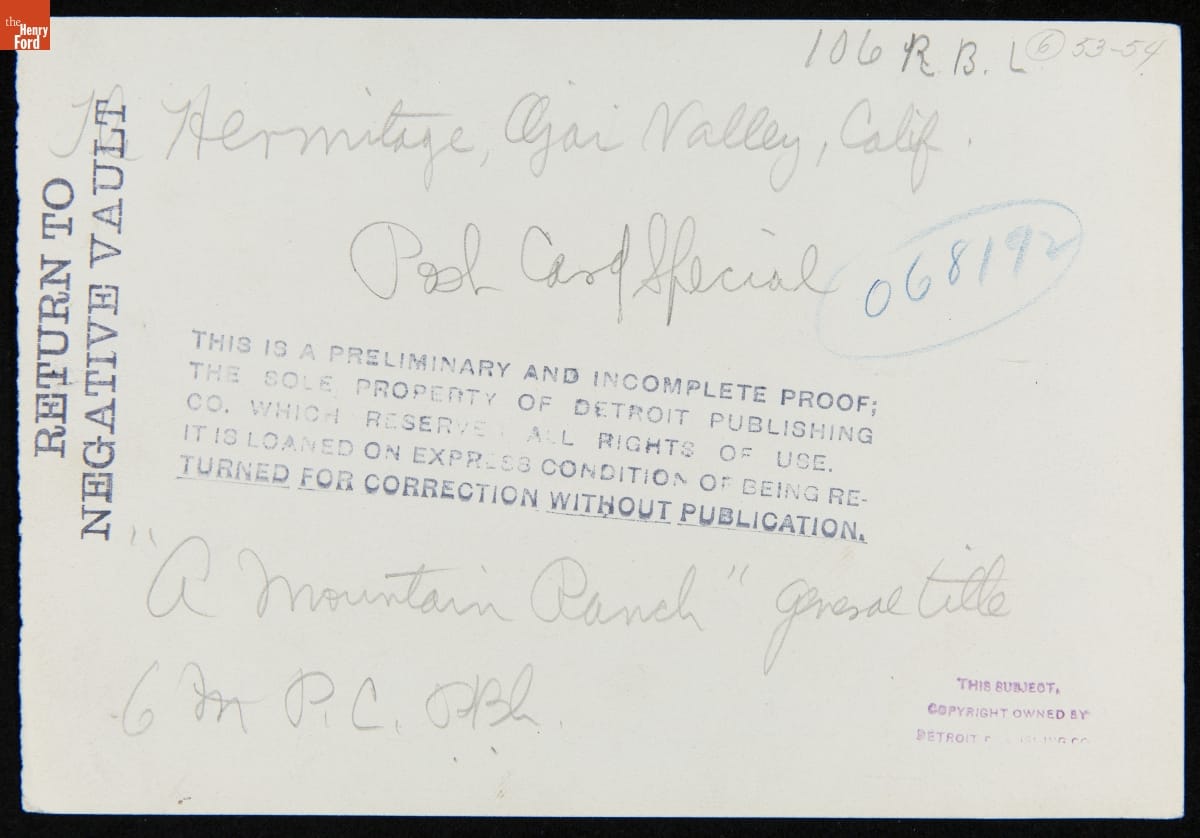 the
Henry
Ford
106 R.B.L 6 53-54
The Hermitage, Ojai Valley, Calif.
Post Card Special
068192
RETURN TO
NEGATIVE VAULT
THIS IS A PRELIMINARY AND INCOMPLETE PROOF;
THE SOLE PROPERTY OF DETROIT PUBLISHING
CO. WHICH RESERVES ALL RIGHTS OF USE.
IT IS LOANED ON EXPRESS CONDITION OF BEING RE-
TURNED FOR CORRECTION WITHOUT PUBLICATION.
"A Mountain Ranch" general title
6 M P.C.
THIS SUBJECT,
COPYRIGHT OWNED BY
DETROIT